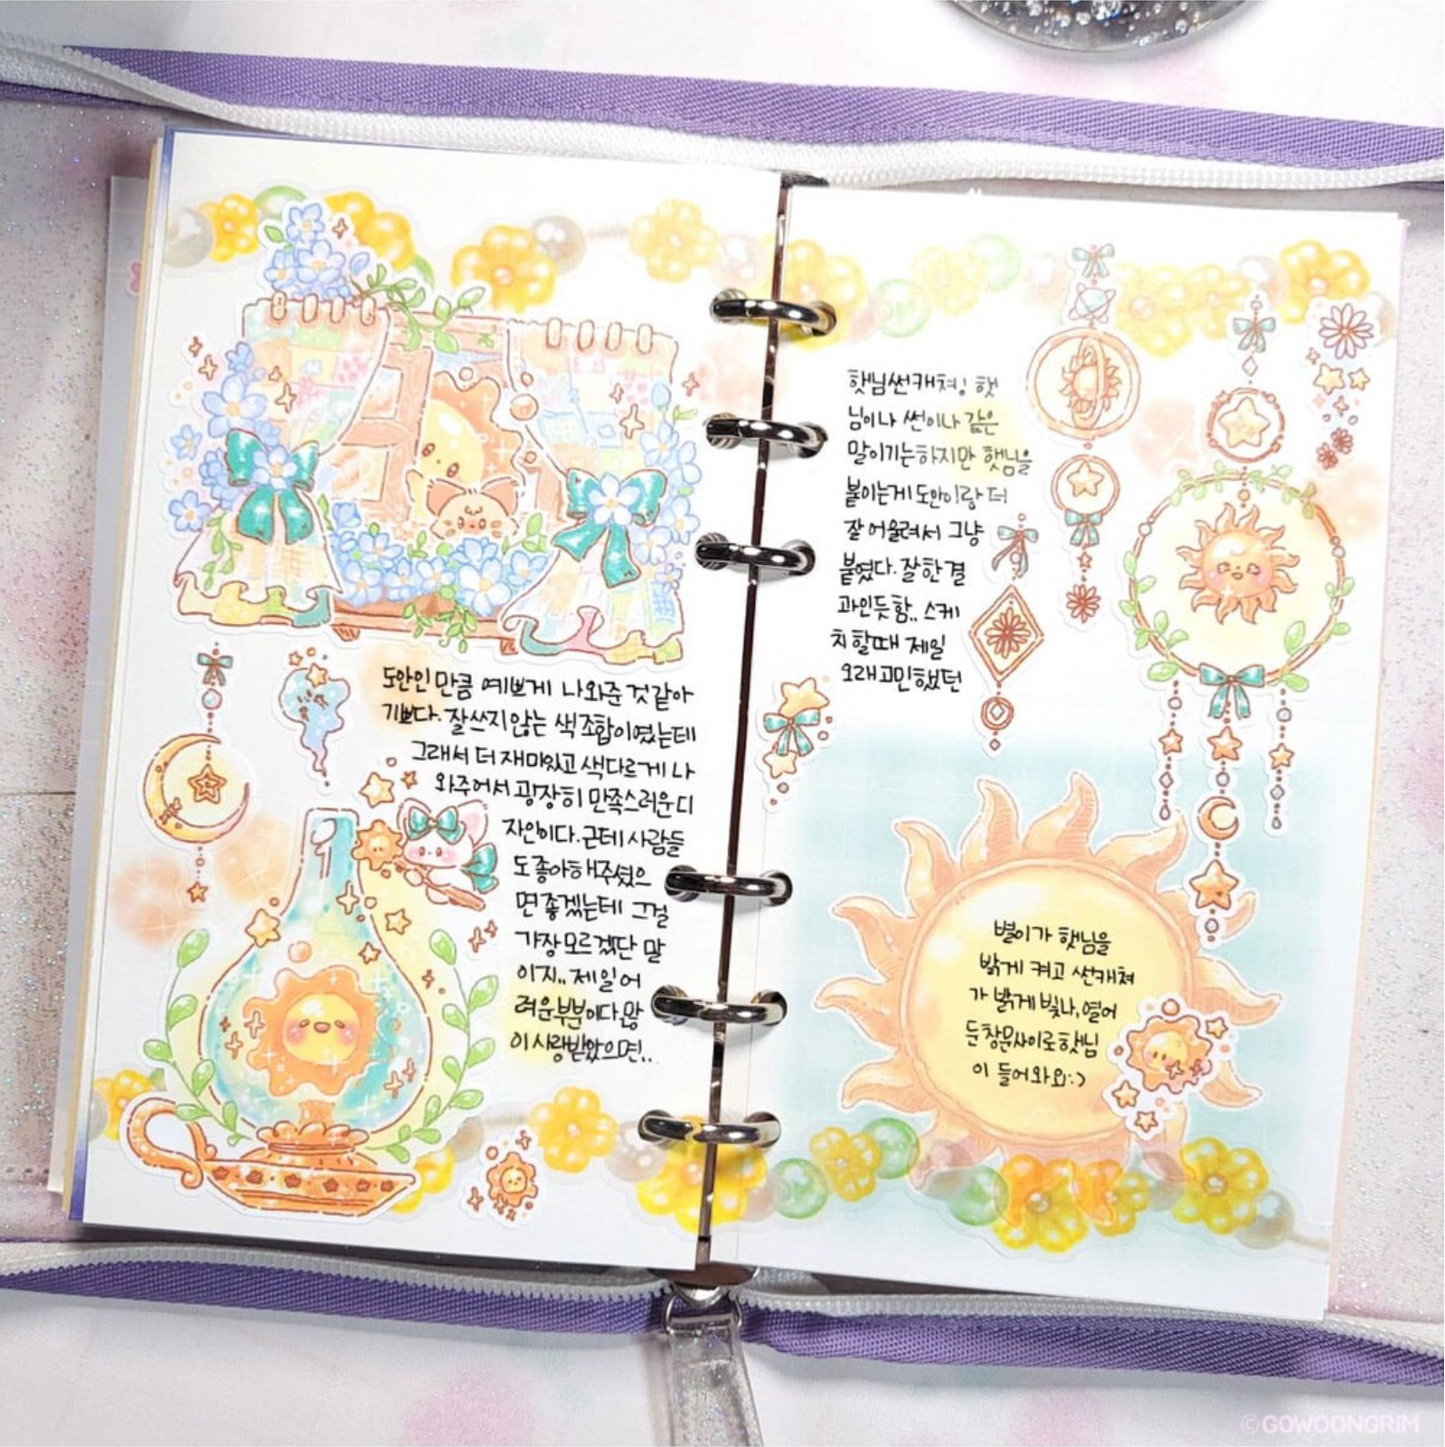 도안인 만큼 예쁘게 나와준 것 같아
기쁘다. 잘 쓰지 않는 색조합이였는데
그래서 더 재미있고 색다르게 나
와주어서 굉장히 만족스러운 디
자인이다. 근데 사람들
도 좋아해주셨으
면 좋겠는데 그걸
가장 모르겠단 말
이지.. 제일 어
려운 부분이다. 많
이 사랑받았으면..
햇님썬캐쳐! 햇
님이나 썬이나 같은
말이기는 하지만 햇님을
붙이는게 도안이랑 더
잘 어울려서 그냥
붙였다. 잘한 결
과인듯 함.. 스케
치 할때 제일
오래 고민했던
별이가 햇님을
밝게 켜고 썬캐쳐
가 밝게 빛나, 열어
둔 창문 사이로 햇님
이 들어와요:)
©GOWOONGRIM